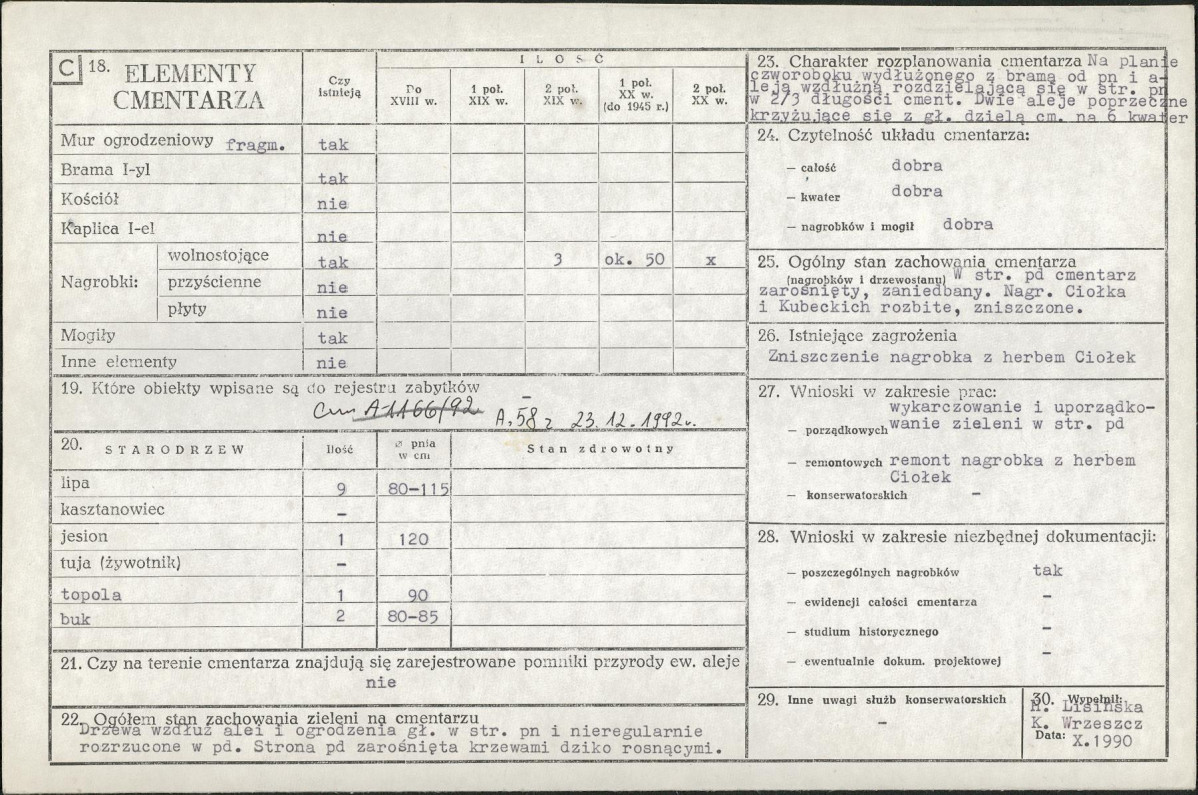 C 18. ELEMENTY CMENTARZA
Czy istnieją
ILOŚĆ
Po XVIII w.
1 poł. XIX w.
2 poł. XIX w.
1 poł. XX w. (do 1945 r.)
2 poł. XX w.
Mur ogrodzeniowy fragm. tak
Brama I-yl tak
Kościół nie
Kaplica I-el nie
Nagrobki:
wolnostojące tak 3 ok. 50 x
przyścienne nie
płyty nie
Mogiły tak
Inne elementy nie
19. Które obiekty wpisane są do rejestru zabytków –
A1166/92 A.58 z 23.12.1992r.
20. STARODRZEW
Ilość
ø pnia w cm
Stan zdrowotny
lipa 9 80-115
kasztanowiec –
jesion 1 120
tuja (żywotnik) –
topola 1 90
buk 2 80-85
21. Czy na terenie cmentarza znajdują się zarejestrowane pomniki przyrody ew. aleje
nie
22. Ogółem stan zachowania zieleni na cmentarzu
Drzewa wzdłuż alei i ogrodzenia gł. w str. pn i nieregularnie
rozrzucone w pd. Strona pd zarośnięta krzewami dziko rosnącymi.
23. Charakter rozplanowania cmentarza Na planie
czworoboku wydłużonego z bramą od pn i a-
leją wzdłużną rozdzielającą się w str. pn
w 2/3 długości cment. Dwie aleje poprzeczne
krzyżujące się z gł. dzielą cm. na 6 kwater
24. Czytelność układu cmentarza:
– całość dobra
– kwater dobra
– nagrobków i mogił dobra
25. Ogólny stan zachowania cmentarza
(nagrobków i drzewostanu) W str. pd cmentarz
zarośnięty, zaniedbany. Nagr. Ciołka
i Kubeckich rozbite, zniszczone.
26. Istniejące zagrożenia
Zniszczenie nagrobka z herbem Ciołek
27. Wnioski w zakresie prac:
wykarczowanie i uporządko-
– porządkowych wanie zieleni w str. pd
– remontowych remont nagrobka z herbem
Ciołek
– konserwatorskich –
28. Wnioski w zakresie niezbędnej dokumentacji:
– poszczególnych nagrobków tak
– ewidencji całości cmentarza –
– studium historycznego –
– ewentualnie dokum. projektowej –
29. Inne uwagi służb konserwatorskich
–
30. Wypełnił:
H. Lisińska
K. Wrzeszcz
Data: X.1990